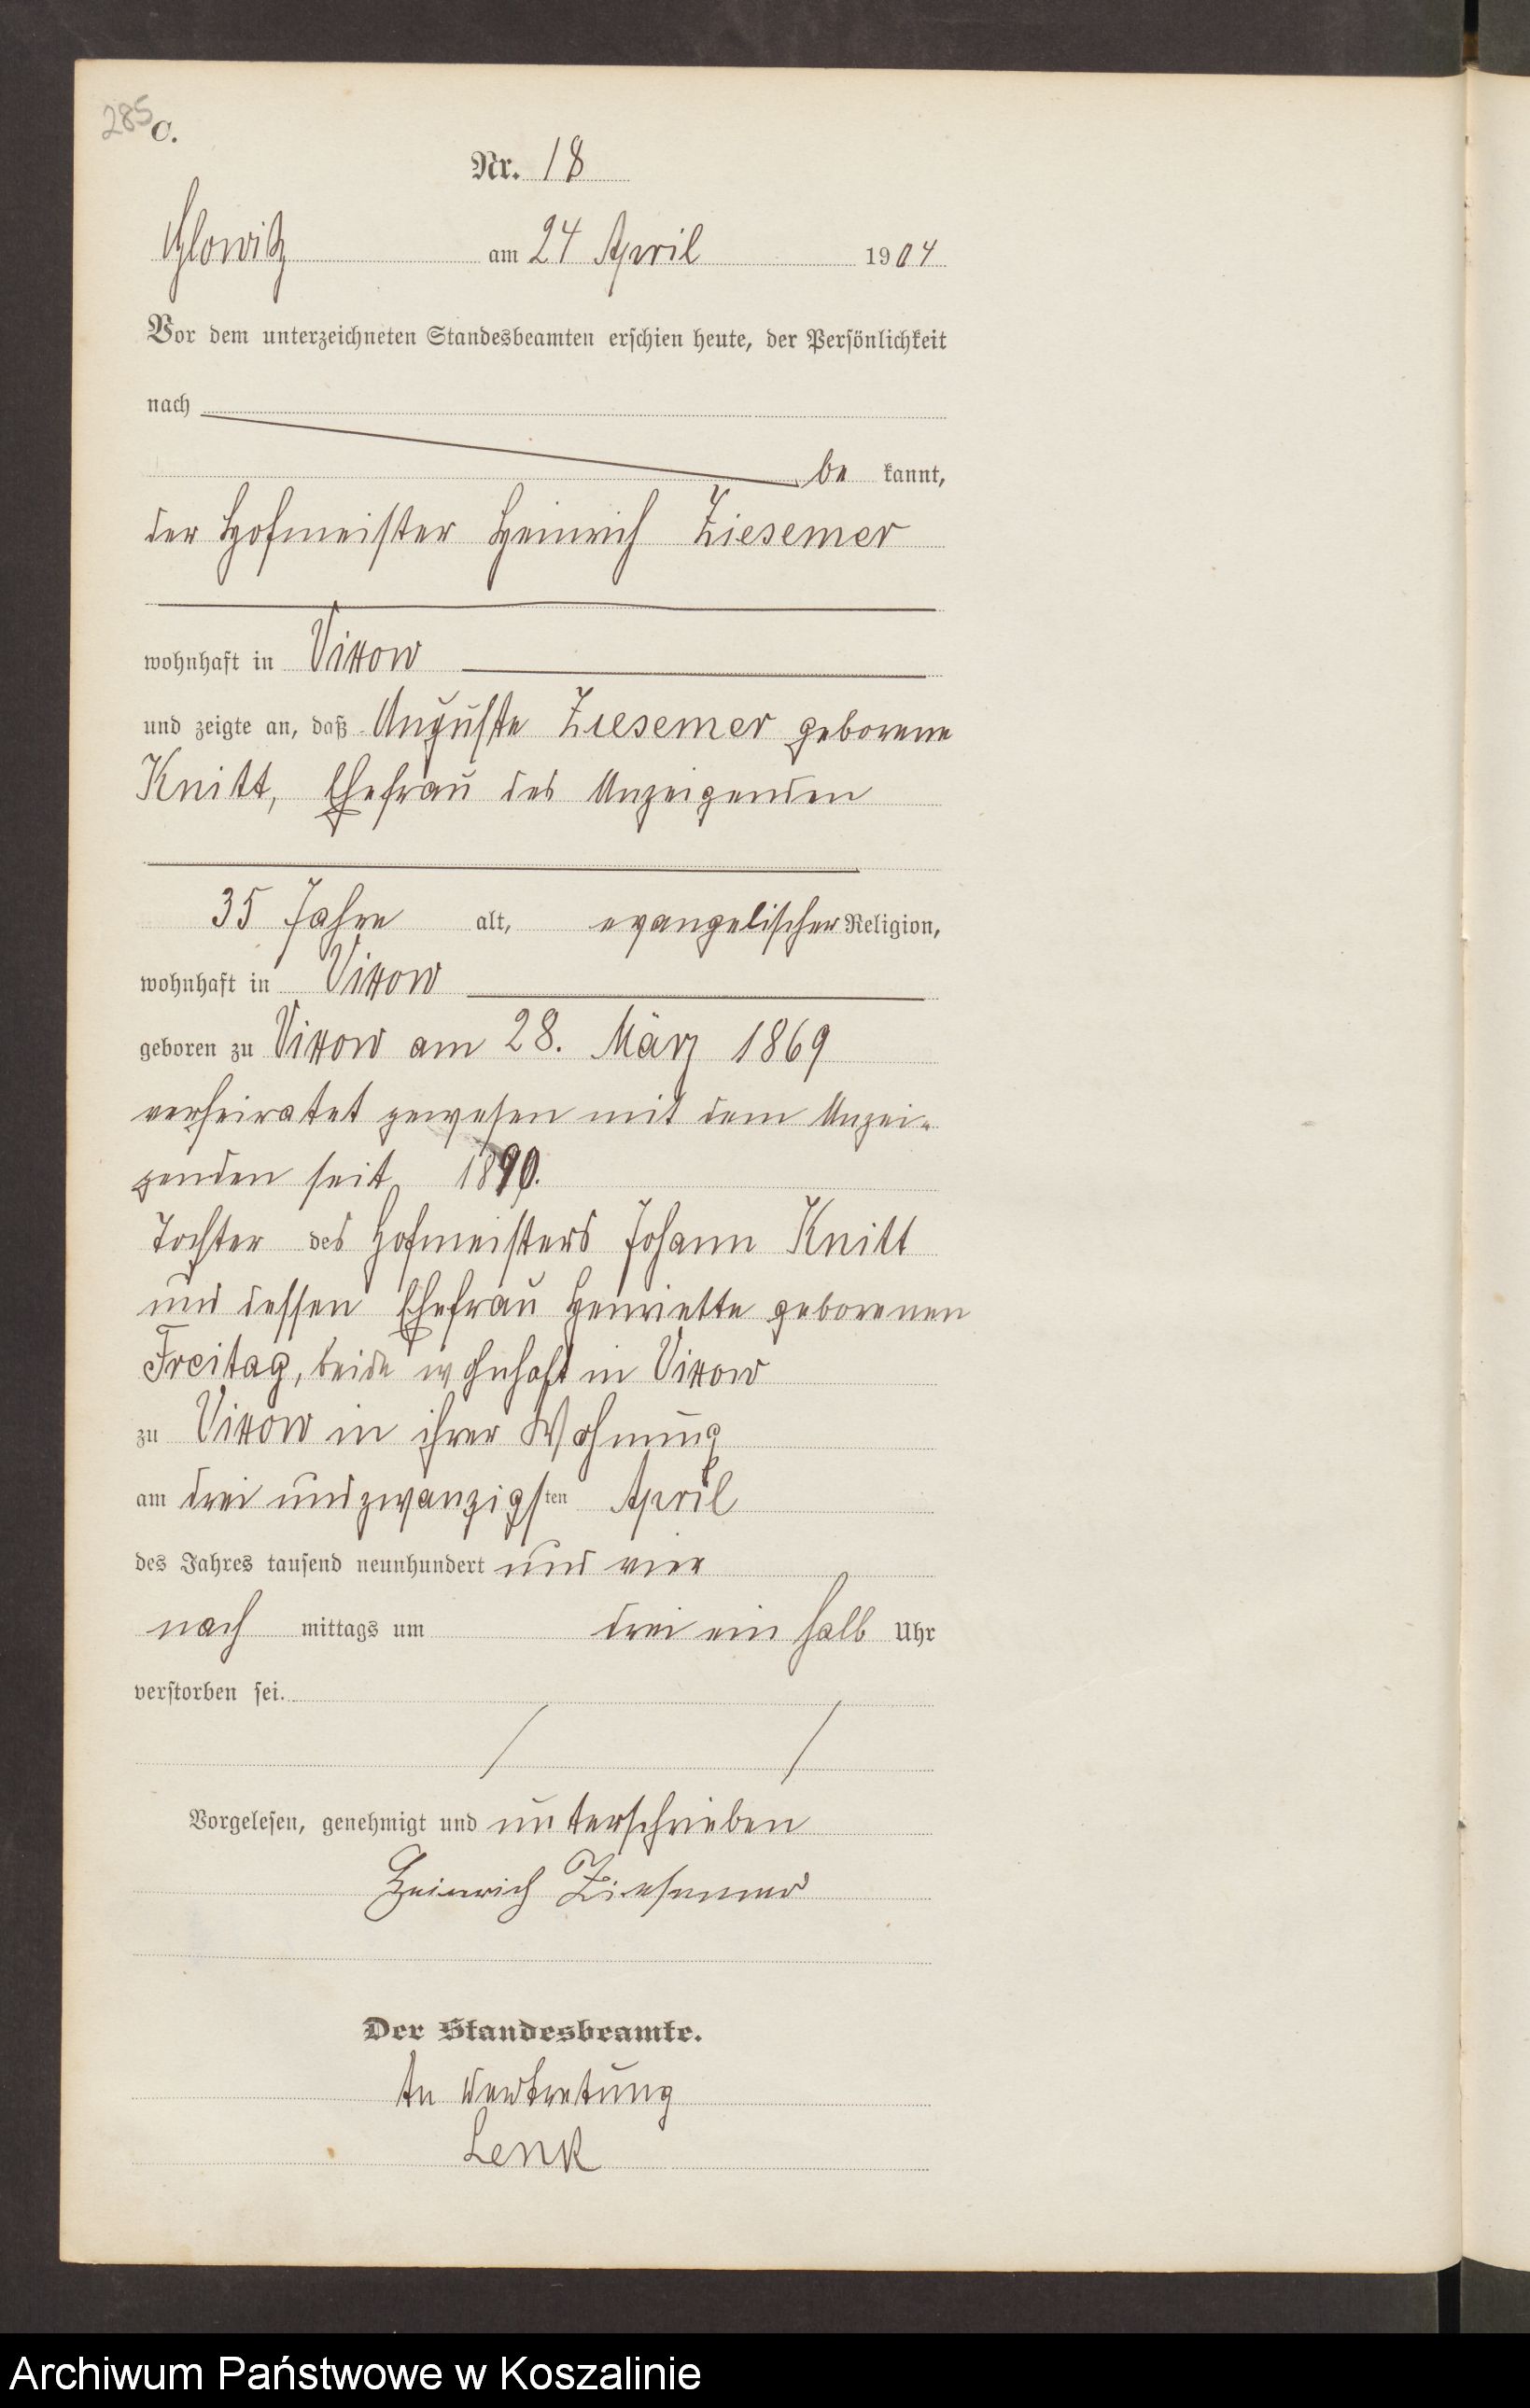 285
C.
Nr. 18
Glowitz am 24 April 1904
Vor dem unterzeichneten Standesbeamten erschien heute, der Persönlichkeit
nach
be kannt,
der Hofmeister Heinrich Ziesemer
wohnhaft in Vixow
und zeigte an, daß Auguste Ziesemer geborene
Knitt, Ehefrau des Anzeigenden
35 Jahre alt, evangelischer Religion,
wohnhaft in Vixow
geboren zu Vixow am 28. März 1869
verheiratet gewesen mit dem Anzei-
genden seit 1890.
Tochter des Hofmeisters Johann Knitt
und dessen Ehefrau Henriette geborenen
Freitag, beide wohnhaft in Vixow
zu Vixow in ihrer Wohnung
am drei und zwanzigsten April
des Jahres tausend neunhundert und vier
nach mittags um drei ein halb Uhr
verstorben sei.
Vorgelesen, genehmigt und unterschrieben
Heinrich Ziesemer
Der Standesbeamte.
In Vertretung
Lenk
Archiwum Państwowe w Koszalinie